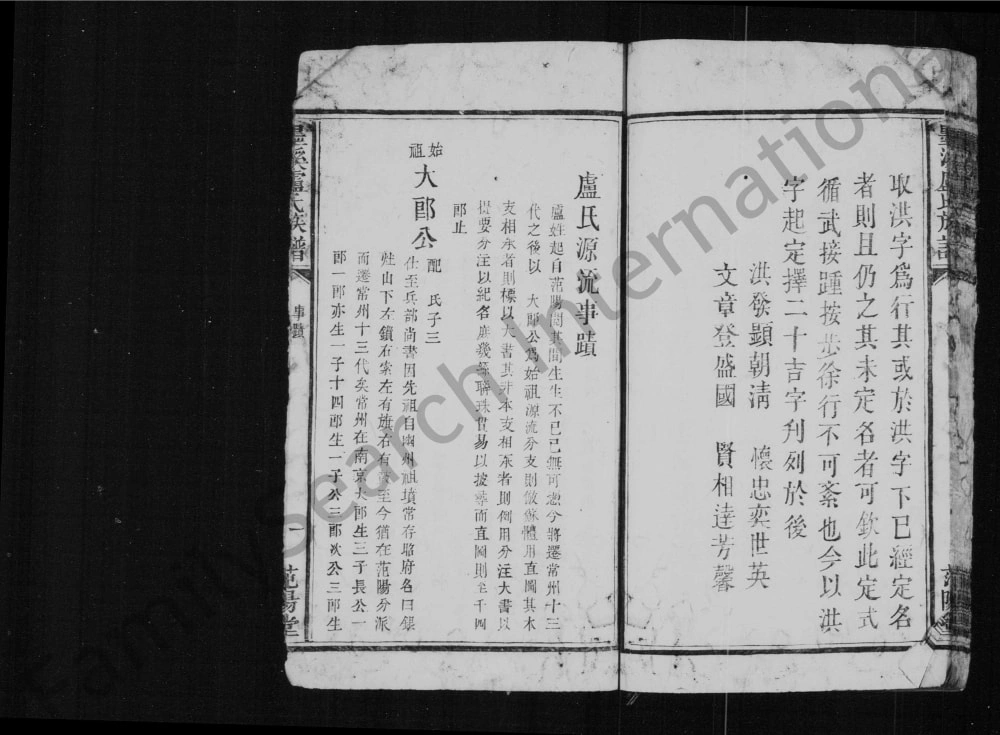 取洪字爲行其或於洪字下已經定名
者則且仍之其未定名者可欽此定式
循武接踵按步徐行不可紊也今以洪
字起定擇二十吉字刋列於後
洪發顯朝淸 懷忠奕世英
文章登盛國 賢相逹芳馨
盧氏源流事蹟
盧姓起自范陽閥其間生生不已已無可
代之後以 大郎公爲始祖源流分支則倣蘇體用直圖其本
支相承者則標以大書其非本支相承者則倒用分注大書以
提要分注以紀名庶幾 聨珠貫易以披尋而直圖則至千四
郎止
始祖 大郎公 配 氏子三
仕至兵部尚書因先祖自幽州祖墳常存 府名曰銀
山下左鎖右索左有旗右有 至今猶在范陽分派
而遷常州十三代矣常州在南京大郎生三子長公一
郎一郎亦生一子十四郎生一子公三郎次公三郎生
星溪盧氏族譜
事蹟
一
范陽堂
FamilySearch International